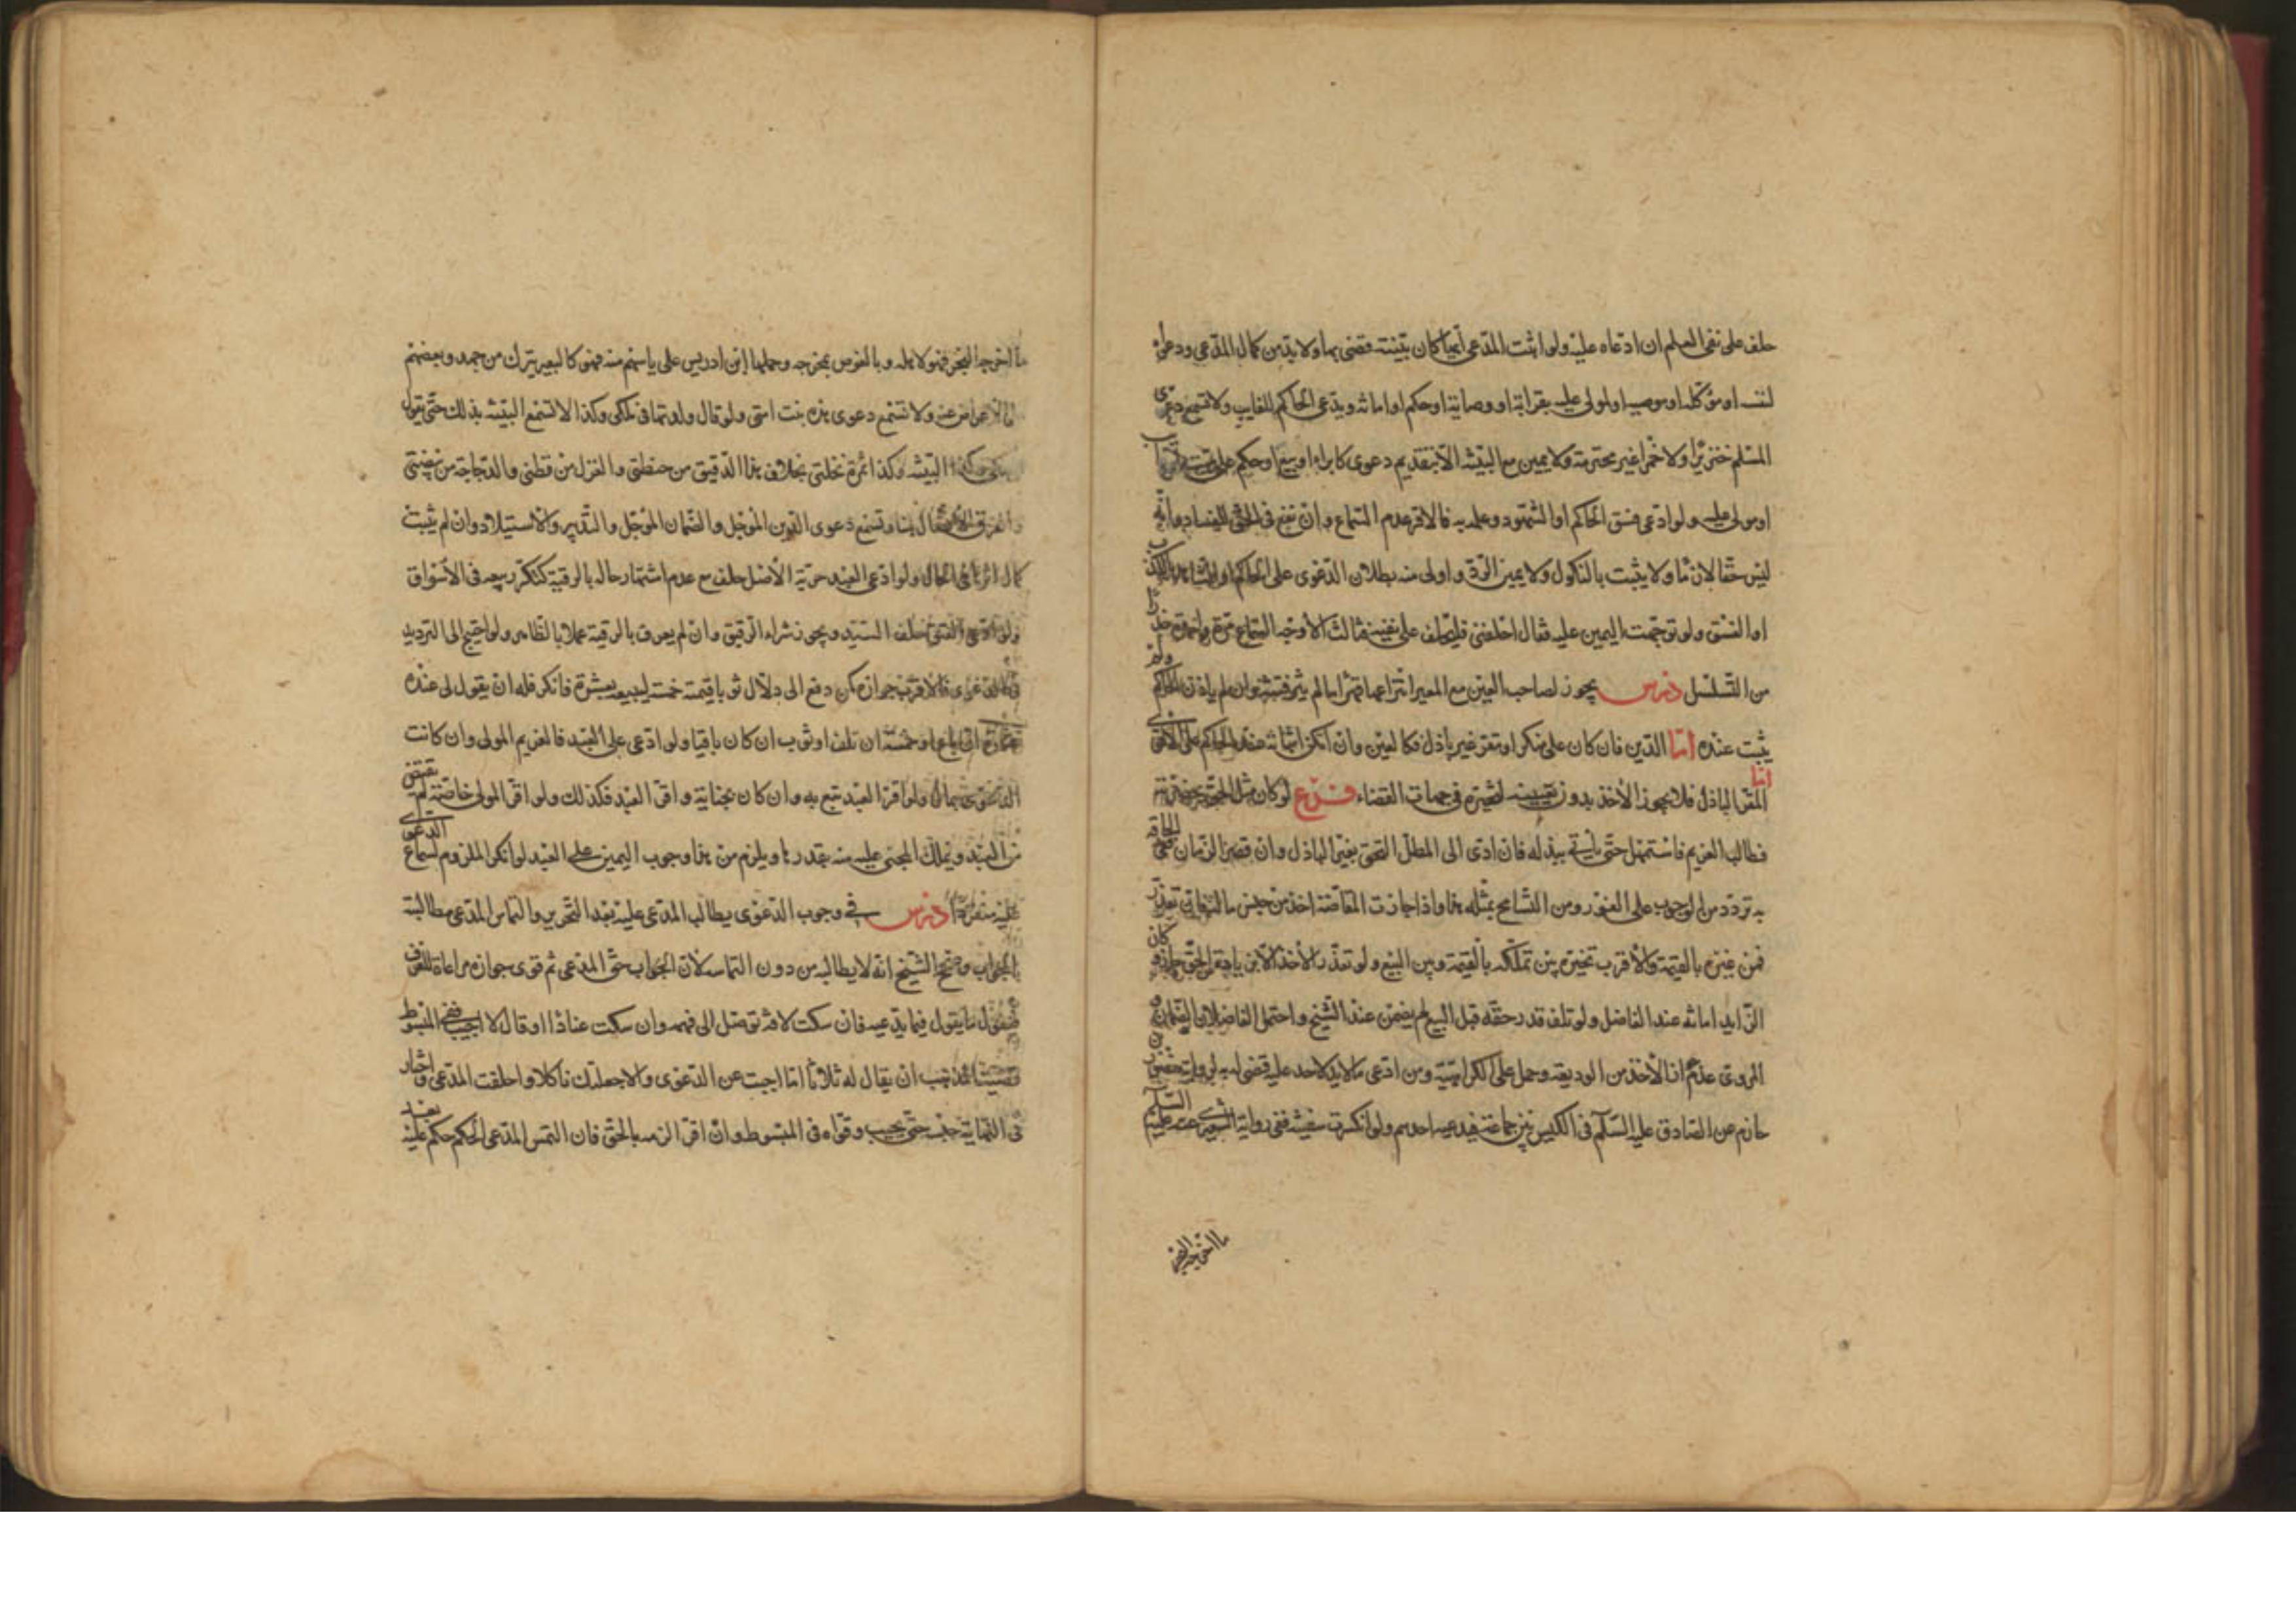 حلف على نفى العلم ان ادعاه عليه ولو اثبت المدعى أيما كان ببينته قضى بها ولا بد من كمال المدعى ودعواه
لنفسه او موكله او موصيه او لمولى عليه بقرابة او وصاية او حكم او امانه ويدعى الحاكم للغايب ولا تسمع دعوى
المسلم خنزيرا ولا خمرا غير محترمة ولا يمين مع البينه الا بتقديم دعوى كابراء او بيع او حكم على
او مولى عليه ولو ادعى فسق الحاكم او الشهود وعلمه به فالاقرب عدم السماع وان نفع فى الحق للفساد وانه
ليس حقا لازما ولا يثبت بالنكول ولا يمين الرد واولى منه بطلان الدعوى على الحاكم او الشاهد بالكذب
او الفسق ولو توجهت اليمين عليه فقال احلفنى فليحلف على نفيه ثالث الاوجه السماع مرة واحدة حذرا
من التسلسل درس يجوز لصاحب العين مع الغير انتزاعها قهرا ما لم يثر فتنة وان لم ياذن الحاكم ولم
يثبت عنده اما الدين فان كان على منكر او مقر غير باذل فكالعين وان امكن اثباته عند الحاكم على الاقوى
اما المقر الباذل فلا يجوز الأخذ بدون تعيينه لتخيره فى جهات القضاء فرع لو كان مثل الحق بحضرته
فطالب الغريم فاستمهل حتى يأتيه ببذله فان ادى الى المطل التحق بغير الباذل وان قصر الزمان ففى الحاقه
به تردد من الوجوب على الفور ومن التسامح بمثله هنا واذا جازت المقاصة اخذ من جنس ماله فان تعذر
فمن غيره بالقيمة والأقرب تخيره بين تملكه بالقيمة وبين البيع ولو تعذر الأخذ الا بزيادة على الحق جاز وكان
الزايد امانه عند الفاضل ولو تلف قدر حقه قبل البيع لم يضمن عند الشيخ واحتمل الفاضلان الضمان
المروى عدم الأخذ من الوديعة وحمل على الكراهية ومن ادعى ما لا يد لاحد عليه قضى له به لرواية منصور بن
حازم عن الصادق عليه السلام فى الكيس بين جماعة فيدعيه احدهم ولو انكسرت سفينة ففى رواية الشعيرى عنه عليه السلم
ما اخرجه البحر
ما اخرجه البحر فهو لاهله وبالغوص لمخرجه وحملها ابن ادريس على ياسهم منه فهو كالبعير يترك من جهد وبعضهم
على الاعراض عنه ولا تسمع دعوى هذه بنت امتى ولو قال ولدتها فى ملكى وكذا لا تسمع البينه بذلك حتى يقول
ملكى وكذا البينه وكذا ثمرة نخلتى بخلاف هذا الدقيق من حنطتى والغزل من قطنى والدجاجة من بيضتى
والفرق الانفصال هنا وتسمع دعوى الدين المؤجل والضمان المؤجل والتدبير والاستيلاد وان لم يثبت
كمال اثرها فى الحال ولو ادعى العبد حرية الأصل حلف مع عدم اشتهار حاله بالرقية كتكرر بيعه فى الأسواق
ولو ادعى العتق حلف السيد ويجوز شراء الرقيق وان لم يعرف بالرقية عملا بالظاهر ولو احتيج الى الترديد
فى الدعوى فالاقرب جوازه كمن دفع الى دلال ثوبا قيمته خمسة ليبيعه بعشرة فانكر فله ان يقول لى عنده
عشرة ان باع او خمسة ان تلف او ثوب ان كان باقيا ولو ادعى على العبد فالغريم المولى وان كانت
الدعوى بمال ولو اقر العبد تبع به وان كان بجناية واقر العبد فكذلك ولو اقر المولى خاصة لم يقتص
من العبد ويملك المجنى عليه منه بقدرها ويلزم من هذا وجوب اليمين على العبد لو انكر الملزوم لسماع الدعوى
عليه منفردا درس فى وجوب الدعوى يطالب المدعى عليه بعد التحرير والتماس المدعى مطالبته
بالجواب ورجح الشيخ انه لا يطالبه من دون التماسه لان الجواب حق المدعى ثم قوى جوازه مراعاة للعرف
فيقول ما يقول فيما يدعيه فان سكت لآفة توصل الى فهمه وان سكت عنادا او قال لا اجيب ففى المبسوط
قضية المذهب ان يقال له ثلاثا اما اجبت عن الدعوى والا جعلتك ناكلا واحلفت المدعى واختار
فى النهاية حبسه حتى يجيب وقواه فى المبسوط وان اقر الزمه بالحق فان التمس المدعى الحكم حكم عليه بعد